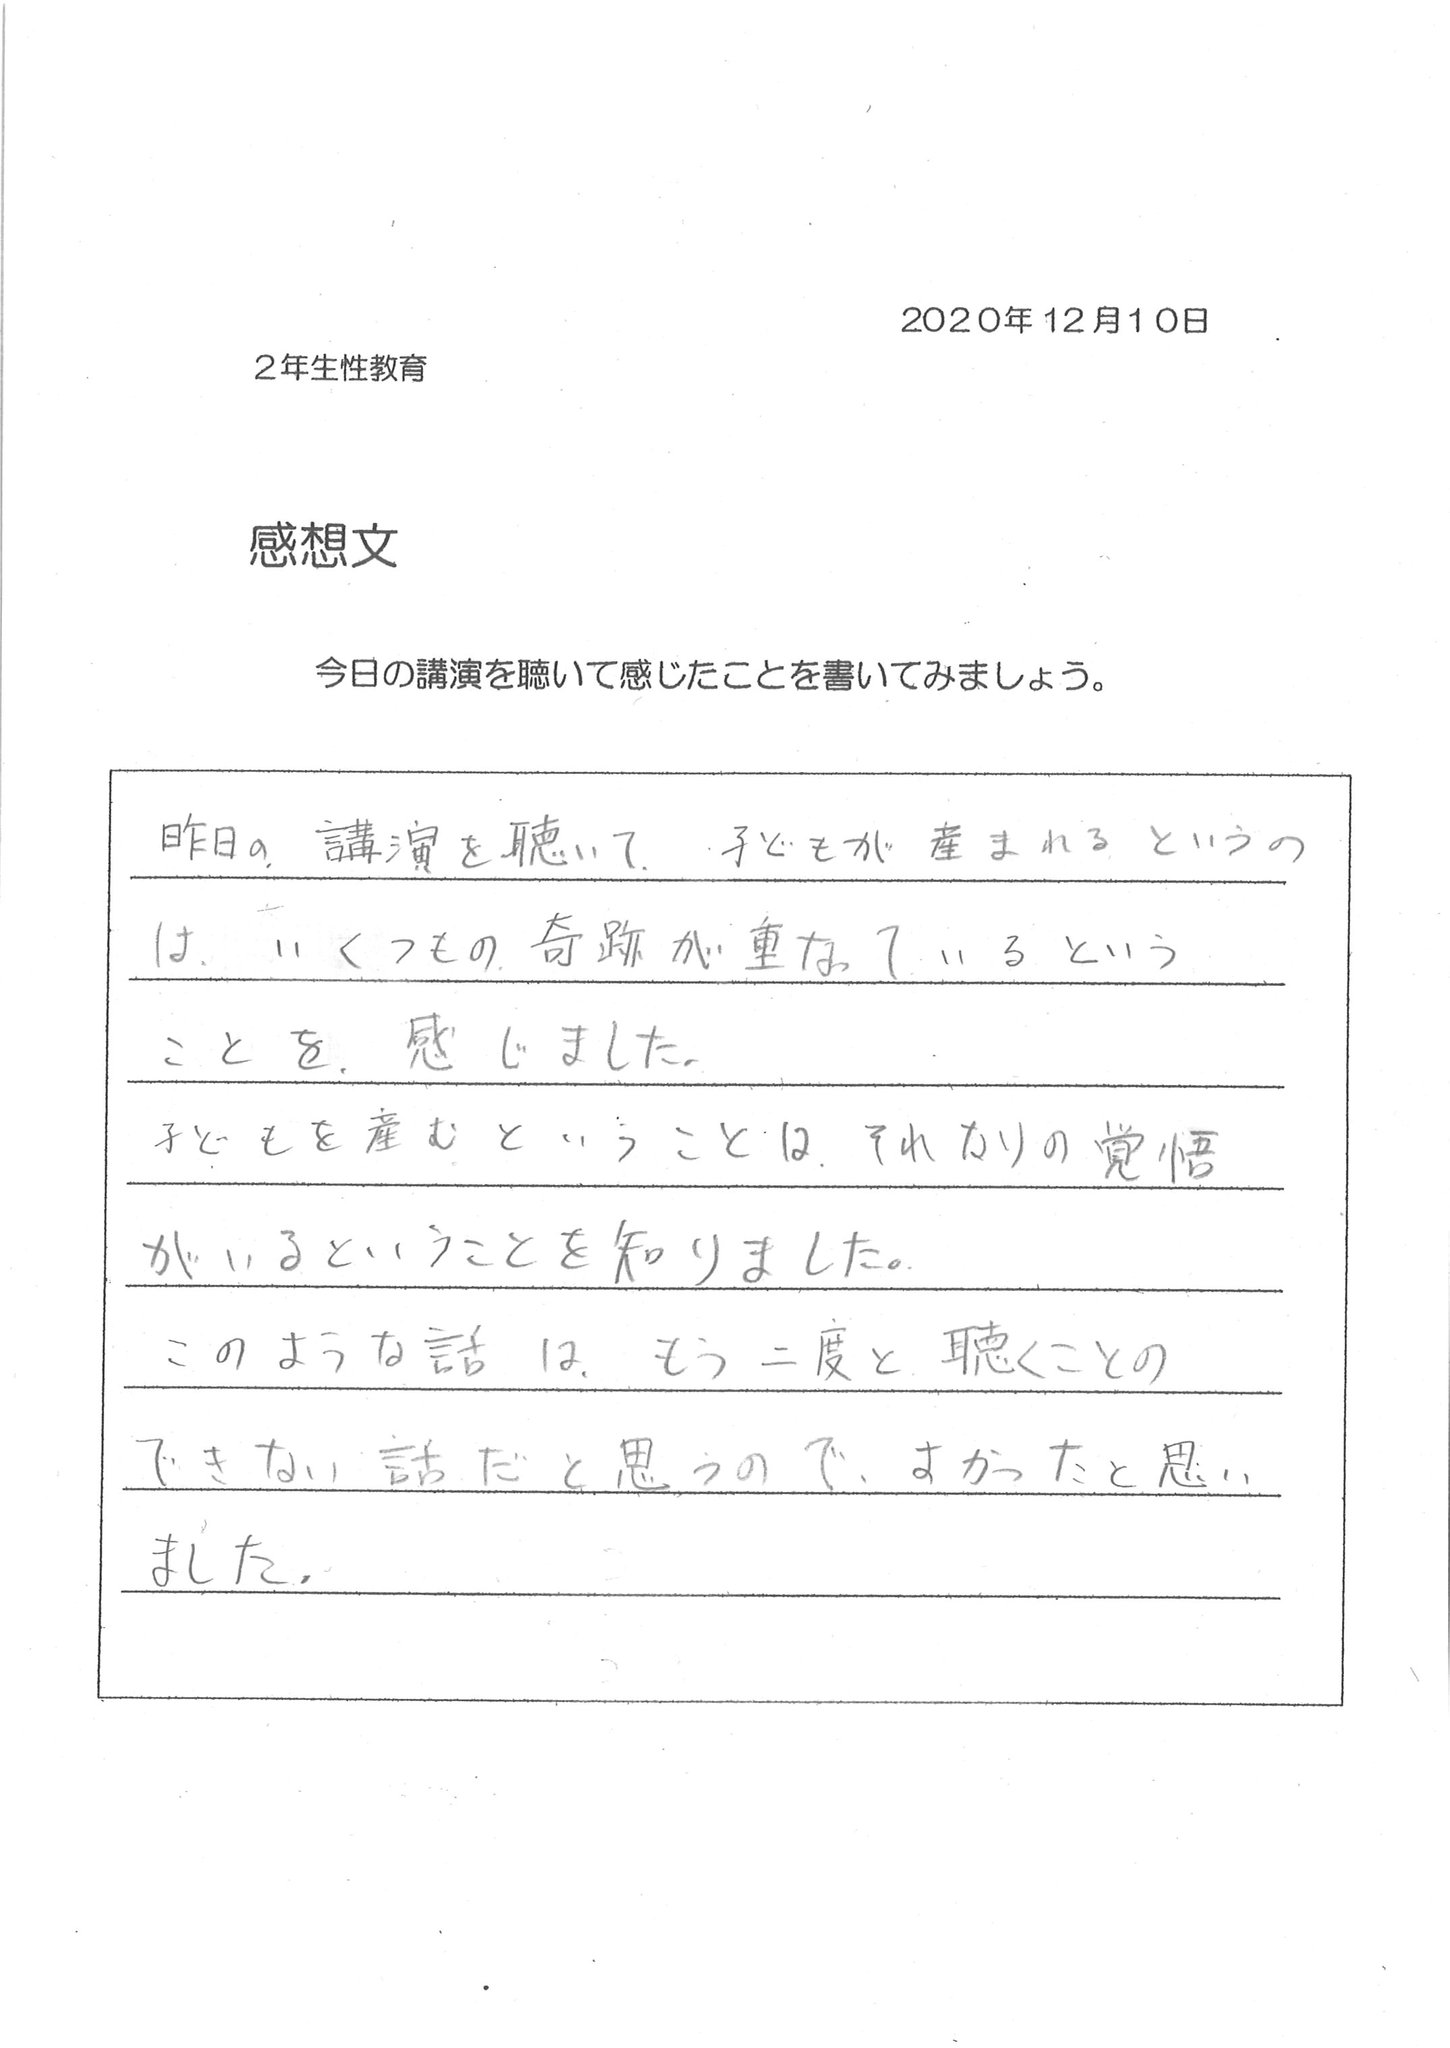 2020年12月10日
2年生性教育
感想文
今日の講演を聴いて感じたことを書いてみましょう。
昨日の、講演を聴いて、子どもが産まれるというの
は、いくつもの、奇跡が重なっているという
ことを、感じました。
子どもを産むということは、それなりの覚悟
がいるということを知りました。
このような話は、もう二度と聴くことの
できない話だと思うので、よかったと思い
ました。